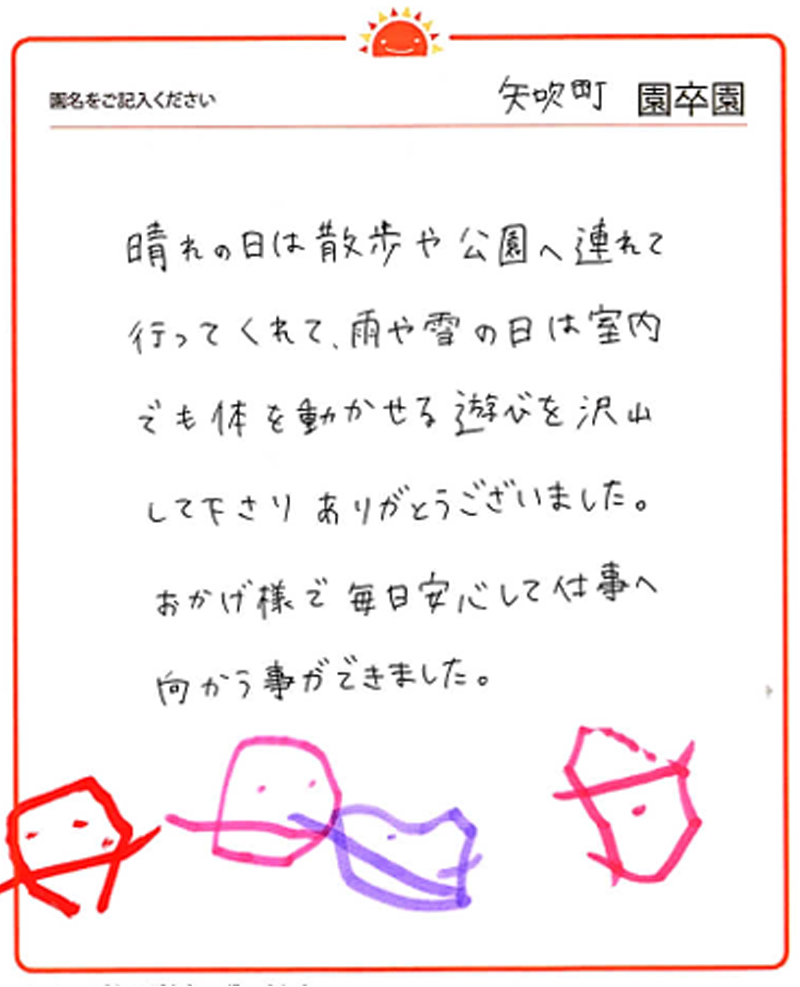 園名をご記入ください
矢吹町 園卒園
晴れの日は散歩や公園へ連れて
行ってくれて、雨や雪の日は室内
でも体を動かせる遊びを沢山
して下さり ありがとうございました。
おかげ様で 毎日安心して仕事へ
向かう事ができました。